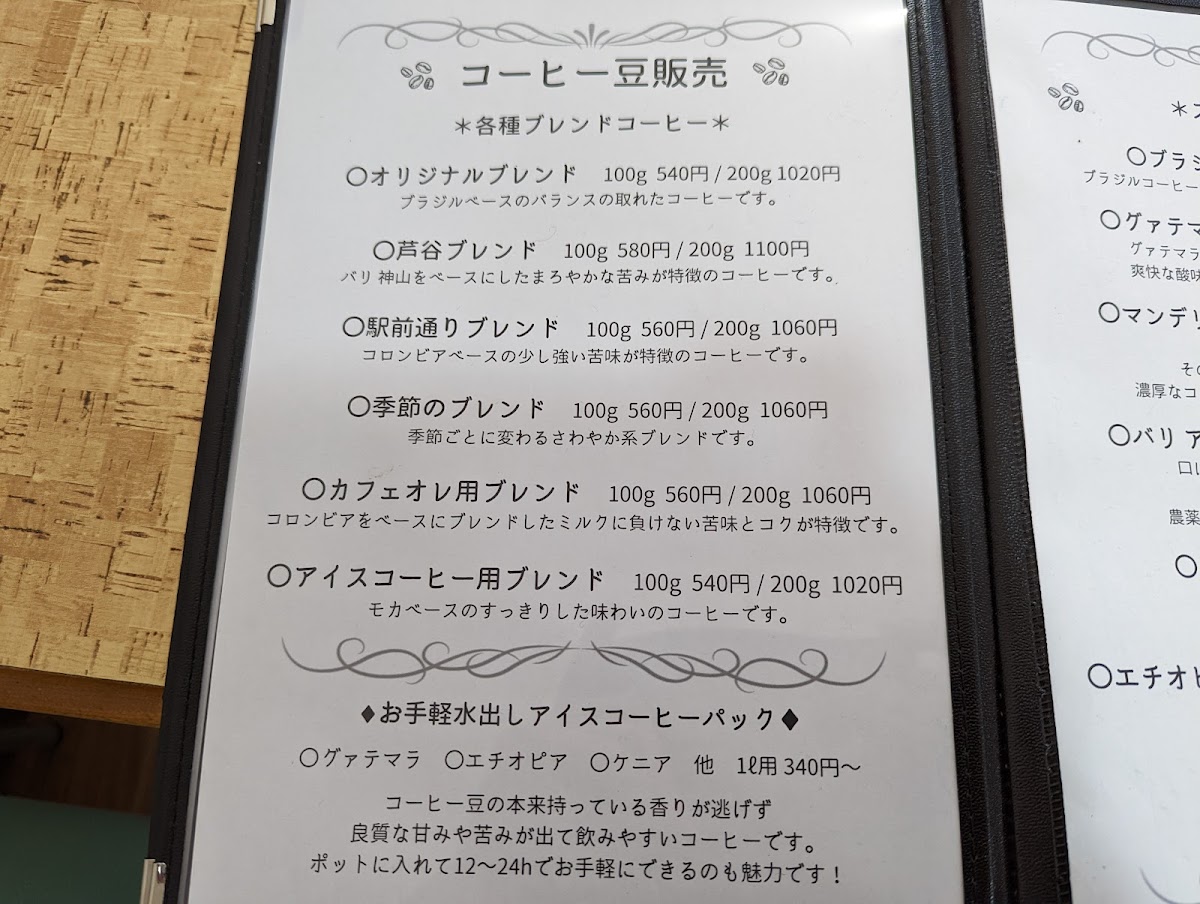 コーヒー豆販売
＊各種ブレンドコーヒー＊
〇オリジナルブレンド 100g 540円 / 200g 1020円
ブラジルベースのバランスの取れたコーヒーです。
〇芦谷ブレンド 100g 580円 / 200g 1100円
バリ 神山をベースにしたまろやかな苦みが特徴のコーヒーです。
〇駅前通りブレンド 100g 560円 / 200g 1060円
コロンビアベースの少し強い苦味が特徴のコーヒーです。
〇季節のブレンド 100g 560円 / 200g 1060円
季節ごとに変わるさわやか系ブレンドです。
〇カフェオレ用ブレンド 100g 560円 / 200g 1060円
コロンビアをベースにブレンドしたミルクに負けない苦味とコクが特徴です。
〇アイスコーヒー用ブレンド 100g 540円 / 200g 1020円
モカベースのすっきりした味わいのコーヒーです。
♦お手軽水出しアイスコーヒーパック♦
〇グァテマラ 〇エチオピア 〇ケニア 他 1ℓ用 340円〜
コーヒー豆の本来持っている香りが逃げず
良質な甘みや苦みが出て飲みやすいコーヒーです。
ポットに入れて12〜24hでお手軽にできるのも魅力です！
〇ブラジ
ブラジルコーヒー
〇グァテマ
グァテマラ
爽快な酸味
〇マンデリ
その
濃厚なコ
〇バリ ア
口に
農薬
〇
〇エチオピ